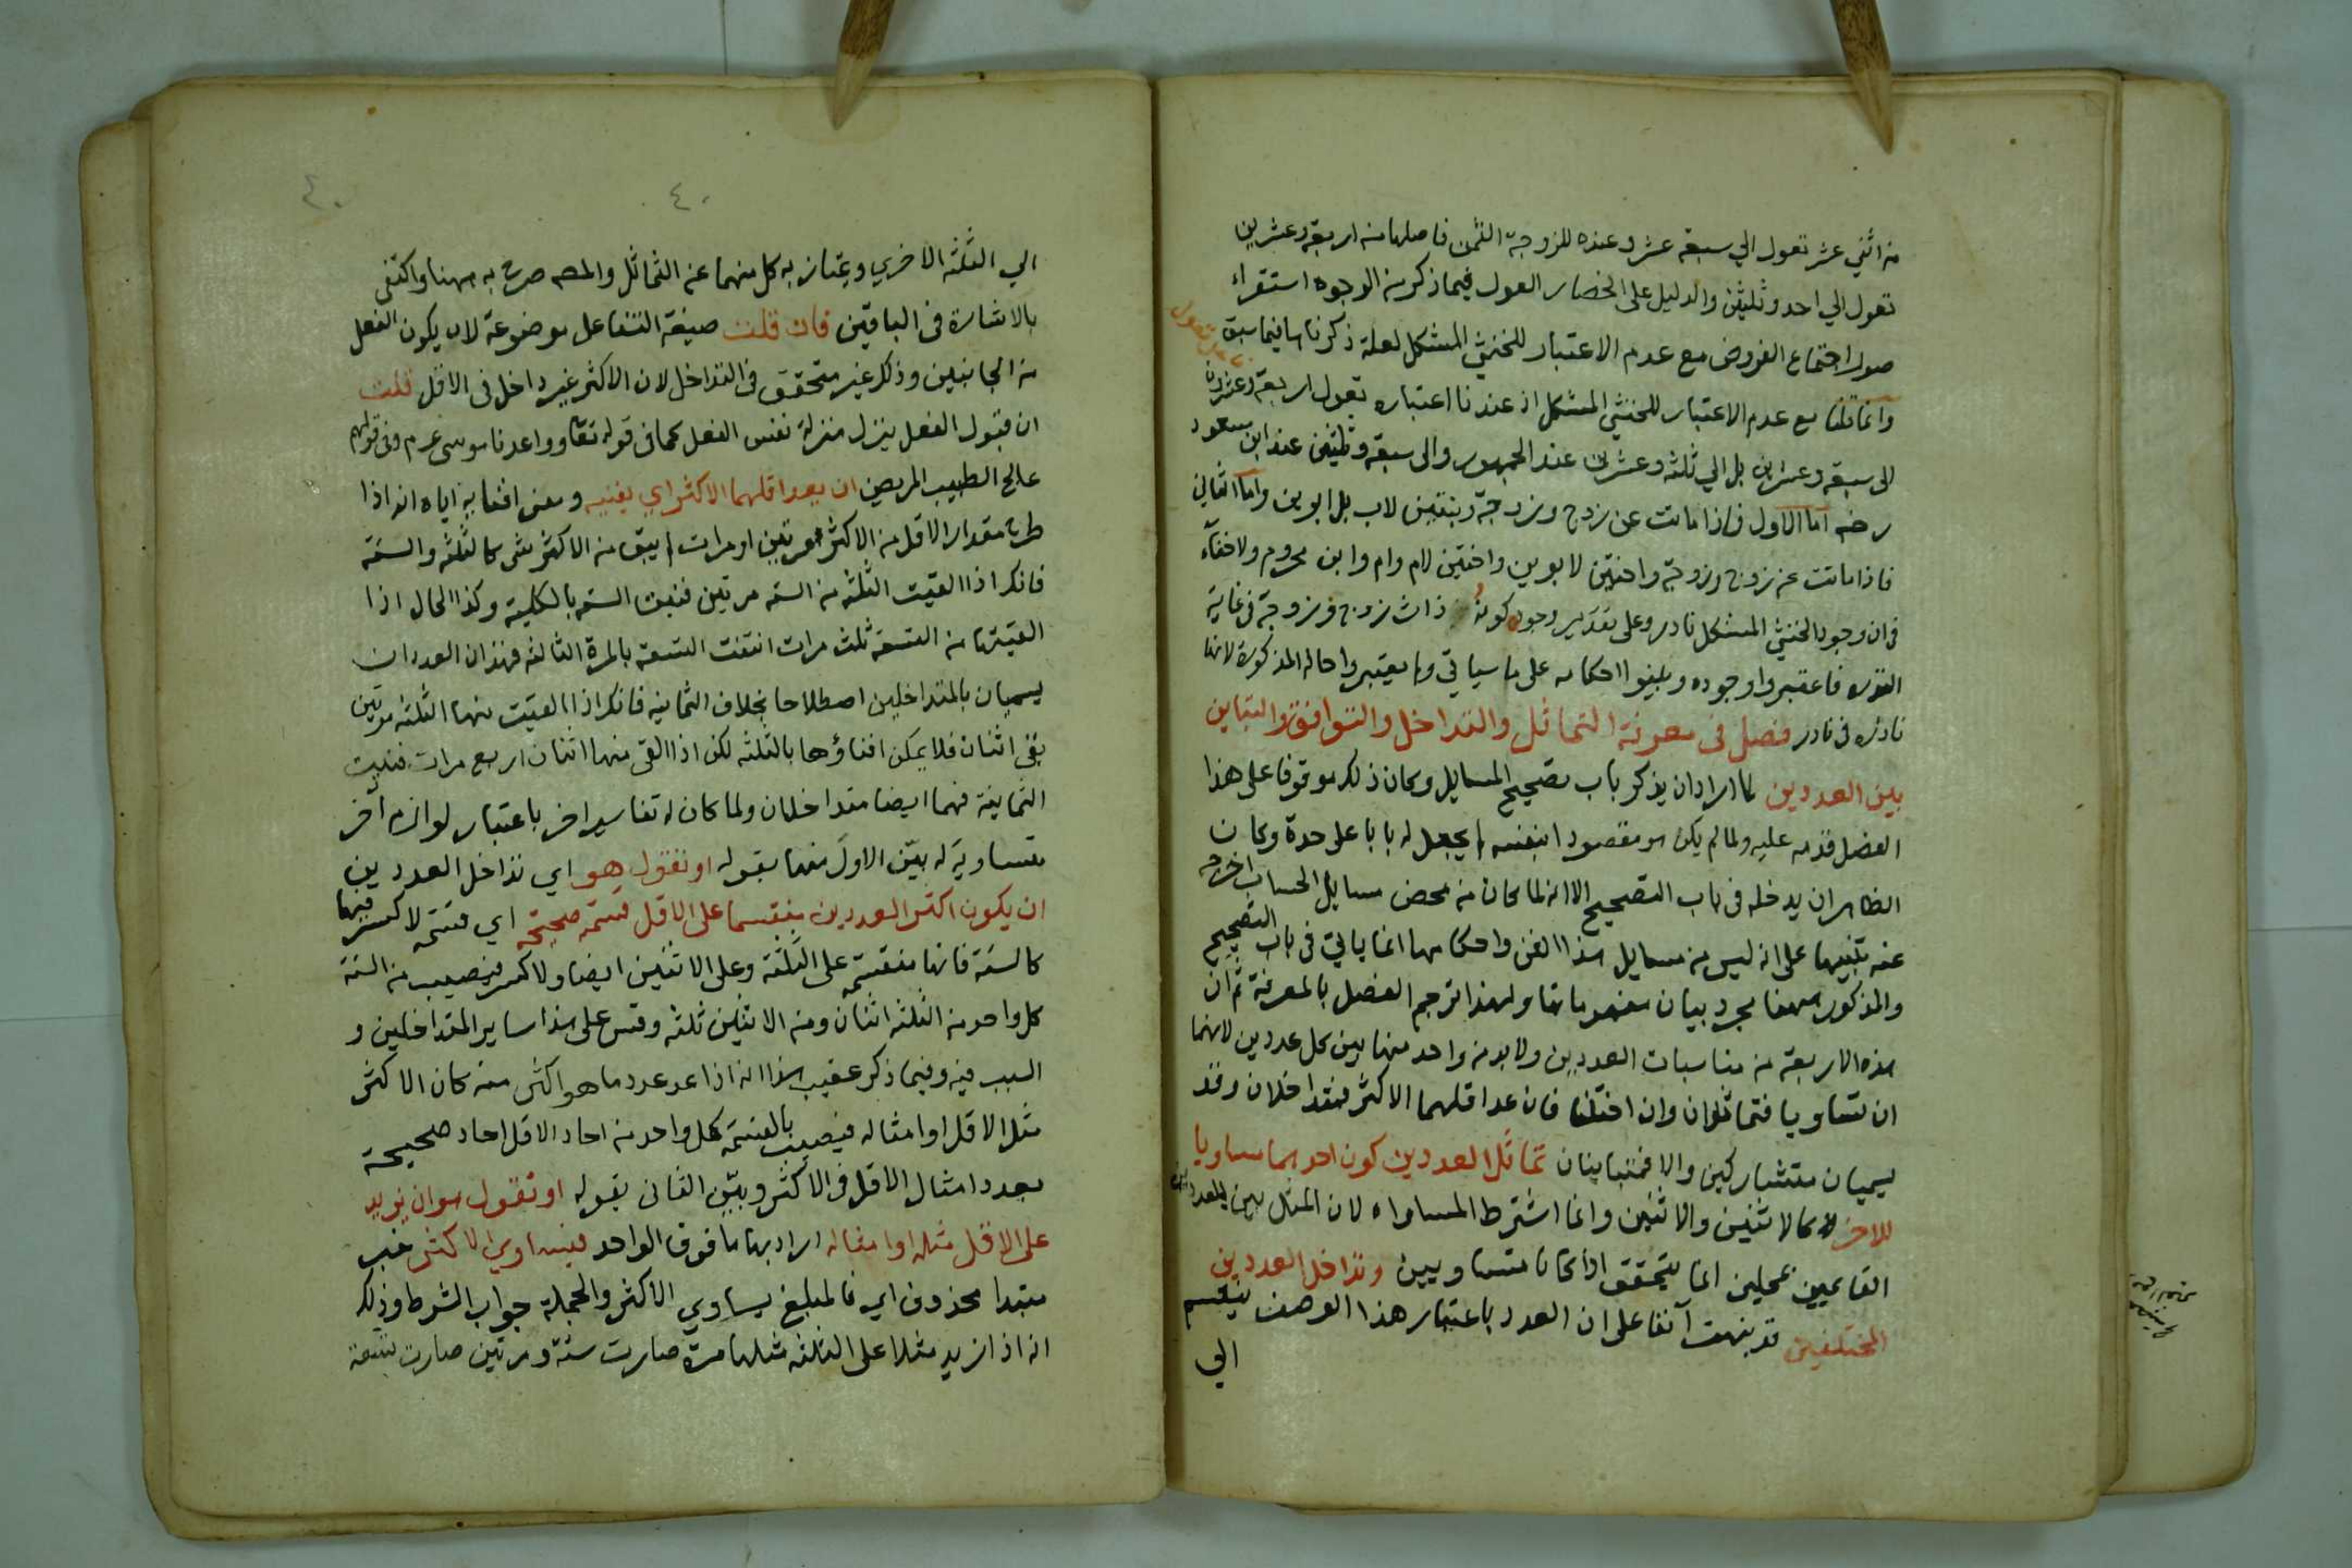 من اثني عشر تعول الي سبعة عشر وعنده للزوجة الثمن فاصلها من اربعة وعشرين
تعول الي احد وثلثين والدليل على انحصار العول فيما ذكر من الوجوه استقراء
صور اجتماع الفروض مع عدم الاعتبار للخنثي المشكل لعلة ذكرناها فيما سبق
وانما قلنا مع عدم الاعتبار للخنثي المشكل اذ عندنا اعتباره تعول اربعة وعشرون
الى سبعة وعشرين بل الي ثلثة وعشرين عند الجمهور والى سبعة وثلثين عند ابن مسعود
رضه اما الاول فاذا ماتت عن زوج وزوجة وبنتين لاب بل ابوين واما الثاني
فاذا ماتت عن زوج وزوجة واختين لابوين واختين لام وام وابن محروم ولا خفاء
في ان وجود الخنثي المشكل نادر وعلى تقدير وجود كونه ذات زوج وزوجة في غاية
الندرة فاعتبروا وجوده وبينوا احكامه على ما سياتي ولم يعتبروا حاله المذكورة لانها
نادرة في نادر فصل في معرفة التماثل والتداخل والتوافق والتباين
بين العددين لما اراد ان يذكر باب تصحيح المسايل وكان ذلك موقوفا على هذا
الفصل قدمه عليه ولما لم يكن هو مقصودا بنفسه لم يجعل له بابا على حدة وكان
الظاهر ان يدخله في باب التصحيح الا انه لما كان من محض مسايل الحساب اخرجه
عنه تنبيها على انه ليس من مسايل هذا الفن واحكامها انما ياتي في باب التصحيح
والمذكور ههنا مجرد بيان مفهوماتها ولهذا ترجم الفصل بالمعرفة ثم ان
هذه الاربعة من مناسبات العددين ولا بد من واحد منها بين كل عددين لانهما
ان تساويا فتماثلان وان اختلفا فان عد اقلهما الاكثر فمتداخلان وقد
يسميان متشاركين والا فمتباينان تماثل العددين كون احدهما مساويا
للاخر كالاثنين والاثنين وانما اشترط المساواه لان المثل بين العددين
القايمين بمحلين انما يتحقق اذا كانا متساويين وتداخل العددين
المختلفين قد نبهت آنفا على ان العدد باعتبار هذا الوصف ينقسم
الي
٤٠
٤٠
الي الثلثة الاخري ويمتاز به كل منهما عن التماثل والمصه صرح به ههنا واكتفى
بالاشارة في الباقين فان قلت صيغة التفاعل موضوعة لان يكون الفعل
من الجانبين وذلك غير متحقق في التداخل لان الاكثر غير داخل في الاقل قلت
ان قبول الفعل ينزل منزلة نفس الفعل كما في قوله تعا وواعدنا موسى عم وفي قولهم
عالج الطبيب المريض ان يعد اقلهما الاكثر اي يفنيه ومعنى افنايه اياه انه اذا
طرح مقدار الاقل من الاكثر مرتين او مرات لم يبق من الاكثر شي كالثلثة والستة
فانك اذا القيت الثلثة من الستة مرتين فنيت الستة بالكلية وكذا الحال اذا
القيتها من التسعة ثلث مرات انتفت التسعة بالمرة الثالثة فهذان العددان
يسميان بالمتداخلين اصطلاحا بخلاف الثمانية فانك اذا القيت منها الثلثة مرتين
بقي اثنان فلا يمكن افناؤها بالثلثة لكن اذا القى منها اثنان اربع مرات فنيت
الثمانية فهما ايضا متداخلان ولما كان له تفاسير اخر باعتبار لوازم اخر
متساوية له بيّن الاول منها بقوله او نقول هو اي تداخل العددين
ان يكون اكثر العددين منقسما على الاقل قسمة صحيحة اي قسمة لا كسر فيها
كالستة فانها منقسمة على الثلثة وعلى الاثنين ايضا ولا كسر فيصيب من الستة
كل واحد من الثلثة اثنان ومن الاثنين ثلثة وقس على هذا ساير المتداخلين و
السبب فيه وفيما ذكر عقيب هذا انه اذا عد عدد ما هو اكثر منه كان الاكثر
مثل الاقل او امثاله فيصيب بالقسمة كل واحد من احاد الاقل احاد صحيحة
بعدد امثال الاقل في الاكثر وبيّن الثاني بقوله او تقول هو ان يزيد
على الاقل مثله او امثاله اراد بها ما فوق الواحد فيساوي الاكثر خبر
مبتدا محذوف اي فالمبلغ يساوي الاكثر والجملة جواب الشرط وذلك
انه اذا زيد مثلا على الثلثة مثلها مرة صارت ستة ومرتين صارت تسعة